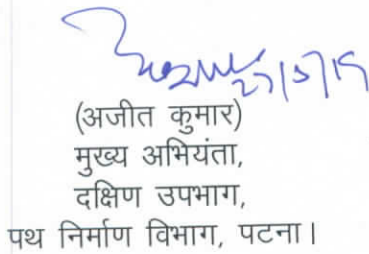 27/5/19
(अजीत कुमार)
मुख्य अभियंता,
दक्षिण उपभाग,
पथ निर्माण विभाग, पटना।